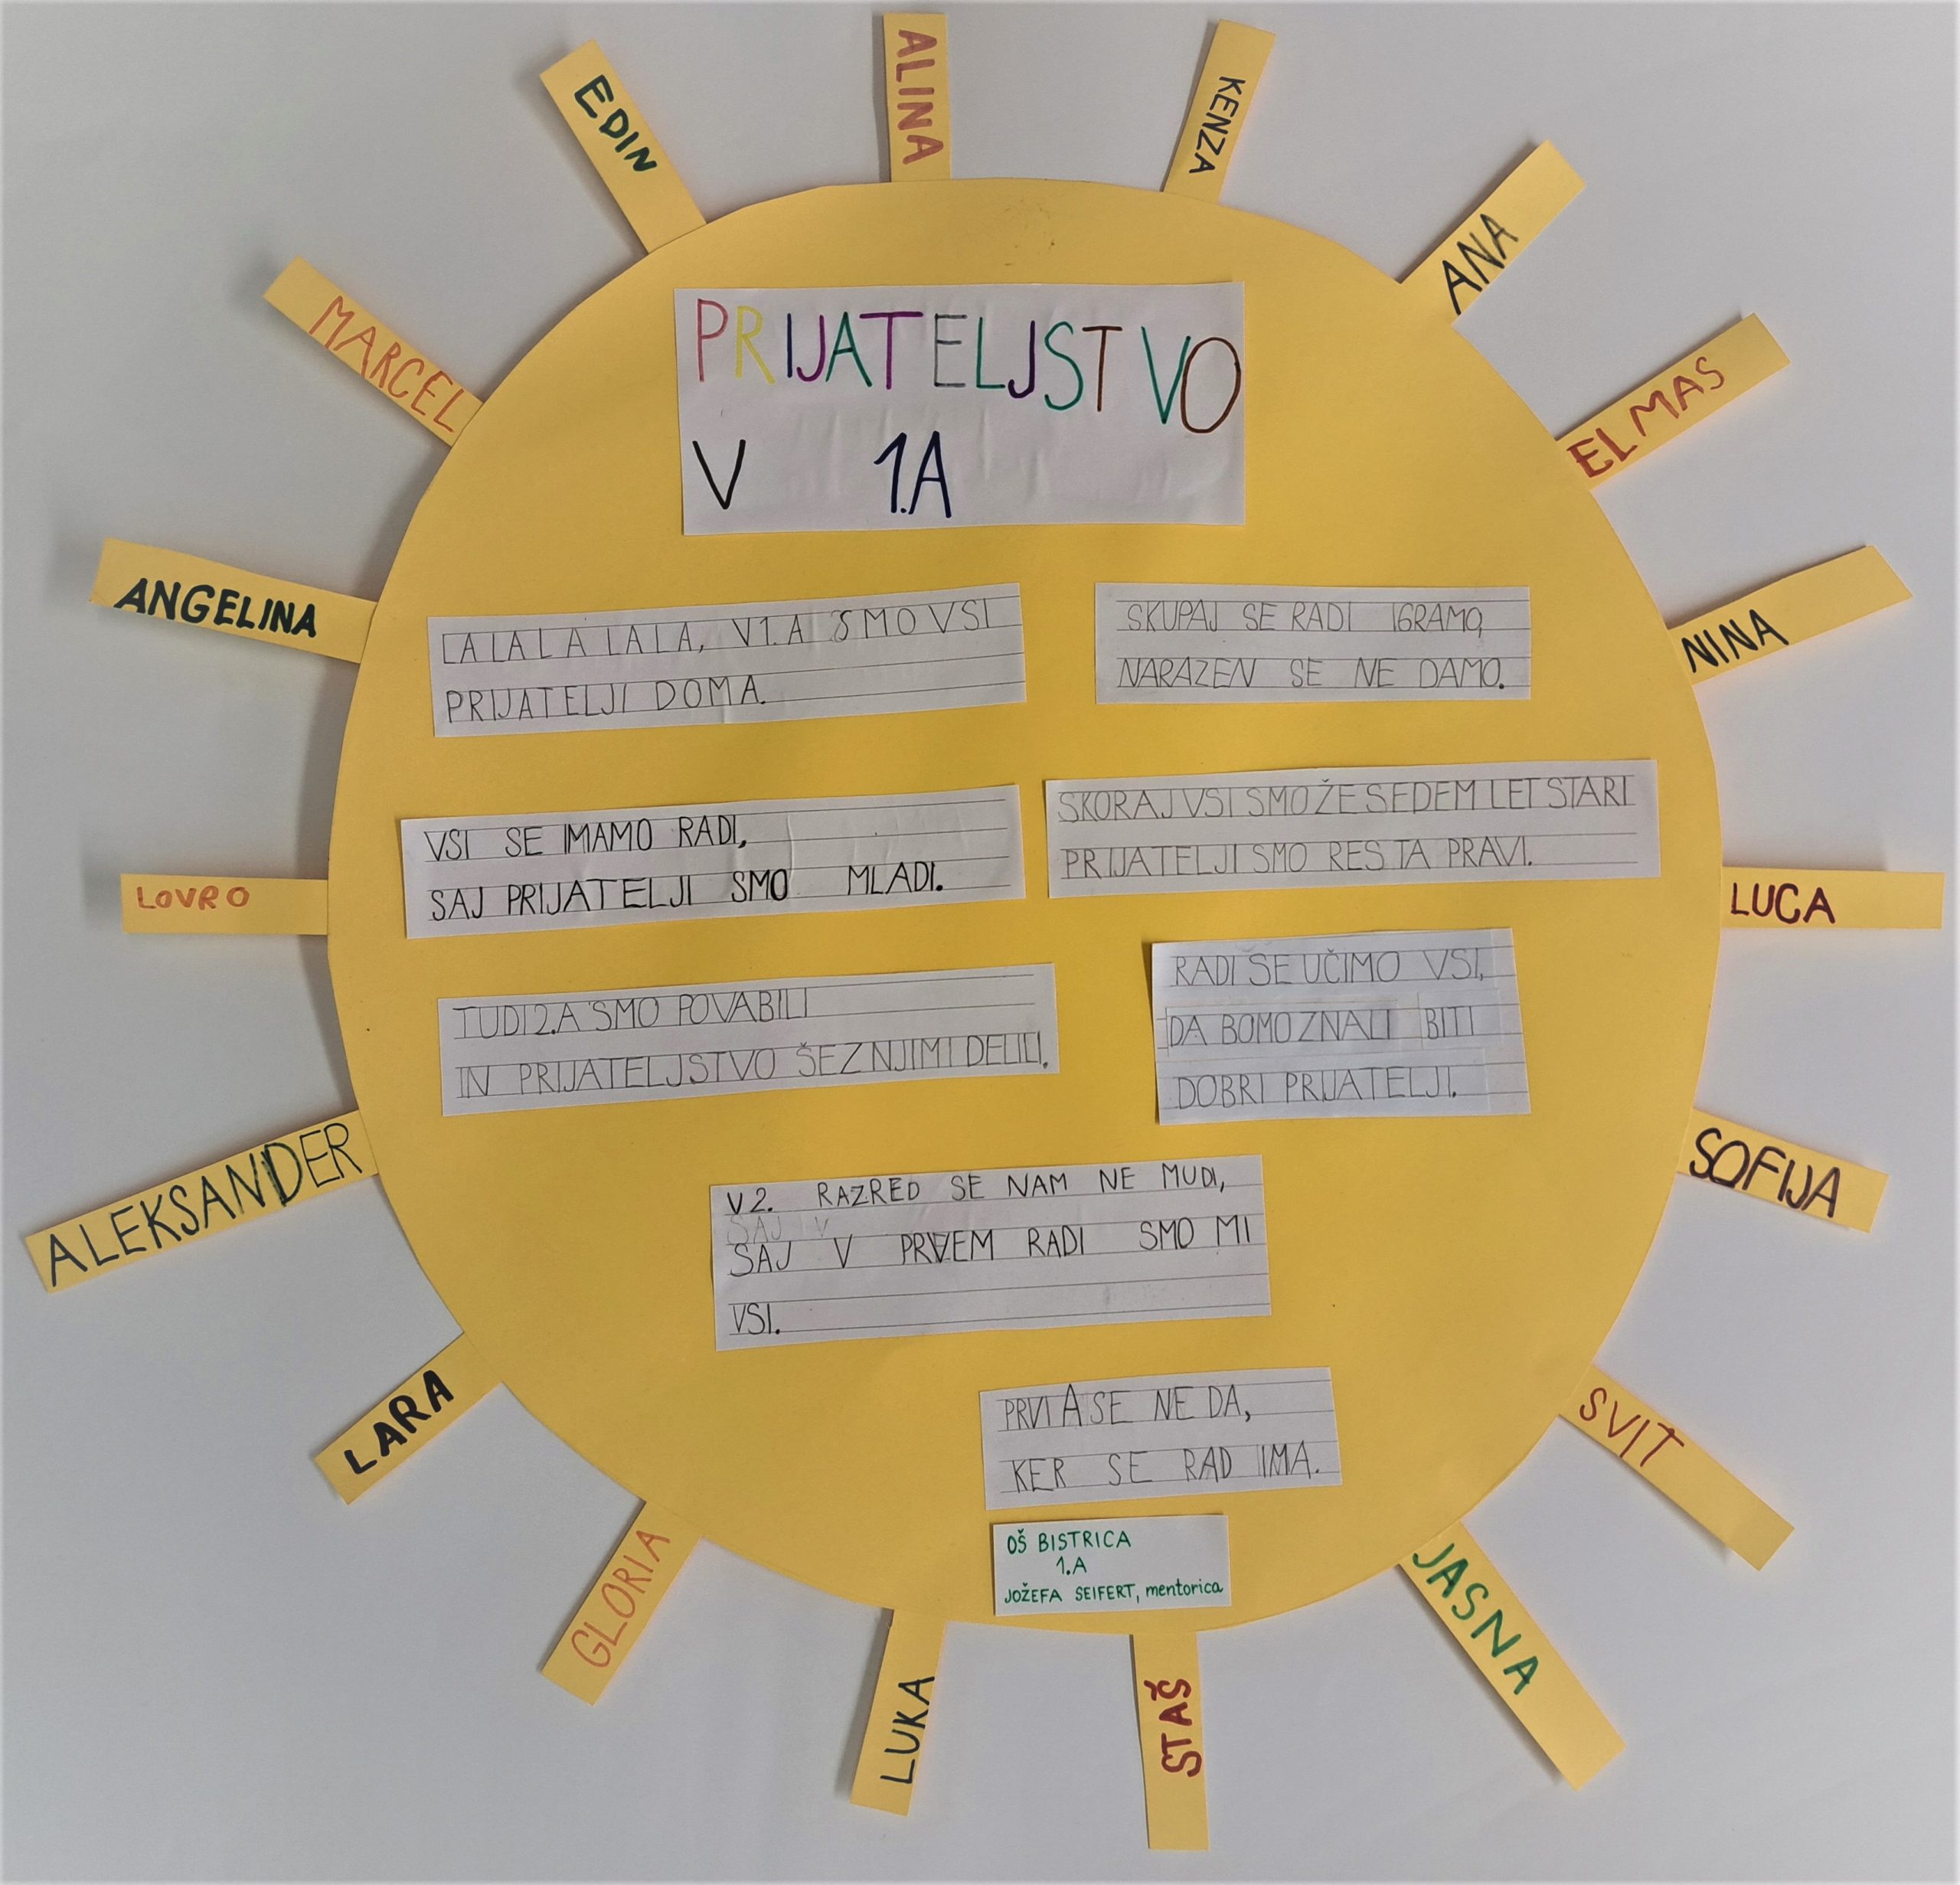 ALINA
KENZA
ANA
ELMAS
NINA
LUCA
SOFIJA
SVIT
JASNA
STAŠ
LUKA
GLORIA
LARA
ALEKSANDER
LOVRO
ANGELINA
MARCEL
EDIN
PRIJATELJSTVO
V 1.A
LA LA LA LA LA, V 1.A SMO VSI
PRIJATELJI DOMA.
SKUPAJ SE RADI IGRAMO,
NARAZEN SE NE DAMO.
VSI SE IMAMO RADI,
SAJ PRIJATELJI SMO MLADI.
SKORAJ VSI SMO ŽE SEDEM LET STARI
PRIJATELJI SMO RES TA PRAVI.
TUDI 2.A SMO POVABILI
IN PRIJATELJSTVO ŠE Z NJIMI DELILI.
RADI SE UČIMO VSI,
DA BOMO ZNALI BITI
DOBRI PRIJATELJI.
V 2. RAZRED SE NAM NE MUDI,
SAJ V
SAJ V PRVEM RADI SMO MI
VSI.
PRVI A SE NE DA,
KER SE RAD IMA.
OŠ BISTRICA
1.A
JOŽEFA SEIFERT, mentorica